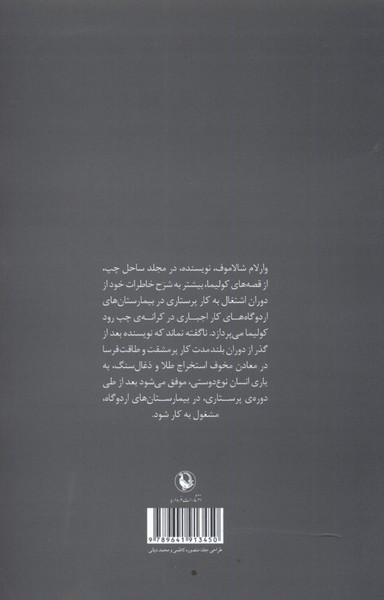 وارلام شالاموف، نویسنده، در مجلد ساحل چپ،
از قصه‌های کولیما، بیشتر به شرح خاطرات خود از
دوران اشتغال به کار پرستاری در بیمارستان‌های
اردوگاه‌های کار اجباری در کرانه‌ی چپ رود
کولیما می‌پردازد. ناگفته نماند که نویسنده بعد از
گذر از دوران بلندمدت کار پرمشقت و طاقت‌فرسا
در معادن مخوف استخراج طلا و ذغال‌سنگ، به
یاری انسان نوع‌دوستی، موفق می‌شود بعد از طی
دوره‌ی پرستاری، در بیمارستان‌های اردوگاه،
مشغول به کار شود.
9 789641 913450
طراحی جلد: منصوره کاظمی و محمد دیانی